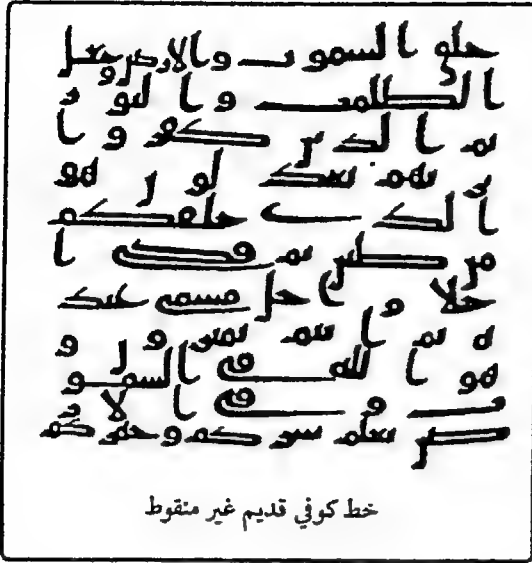 خلق السموت والارض وجعل
الظلمت والنور
ثم الذين كفروا
بربهم يعدلون هو
الذى خلقكم
من طين ثم قضى ا
جلا واجل مسمى عند
ه ثم انتم تمترون و
هو الله فى السمو
ت وفى الار
ض يعلم سركم وجهركم
خط كوفي قديم غير منقوط